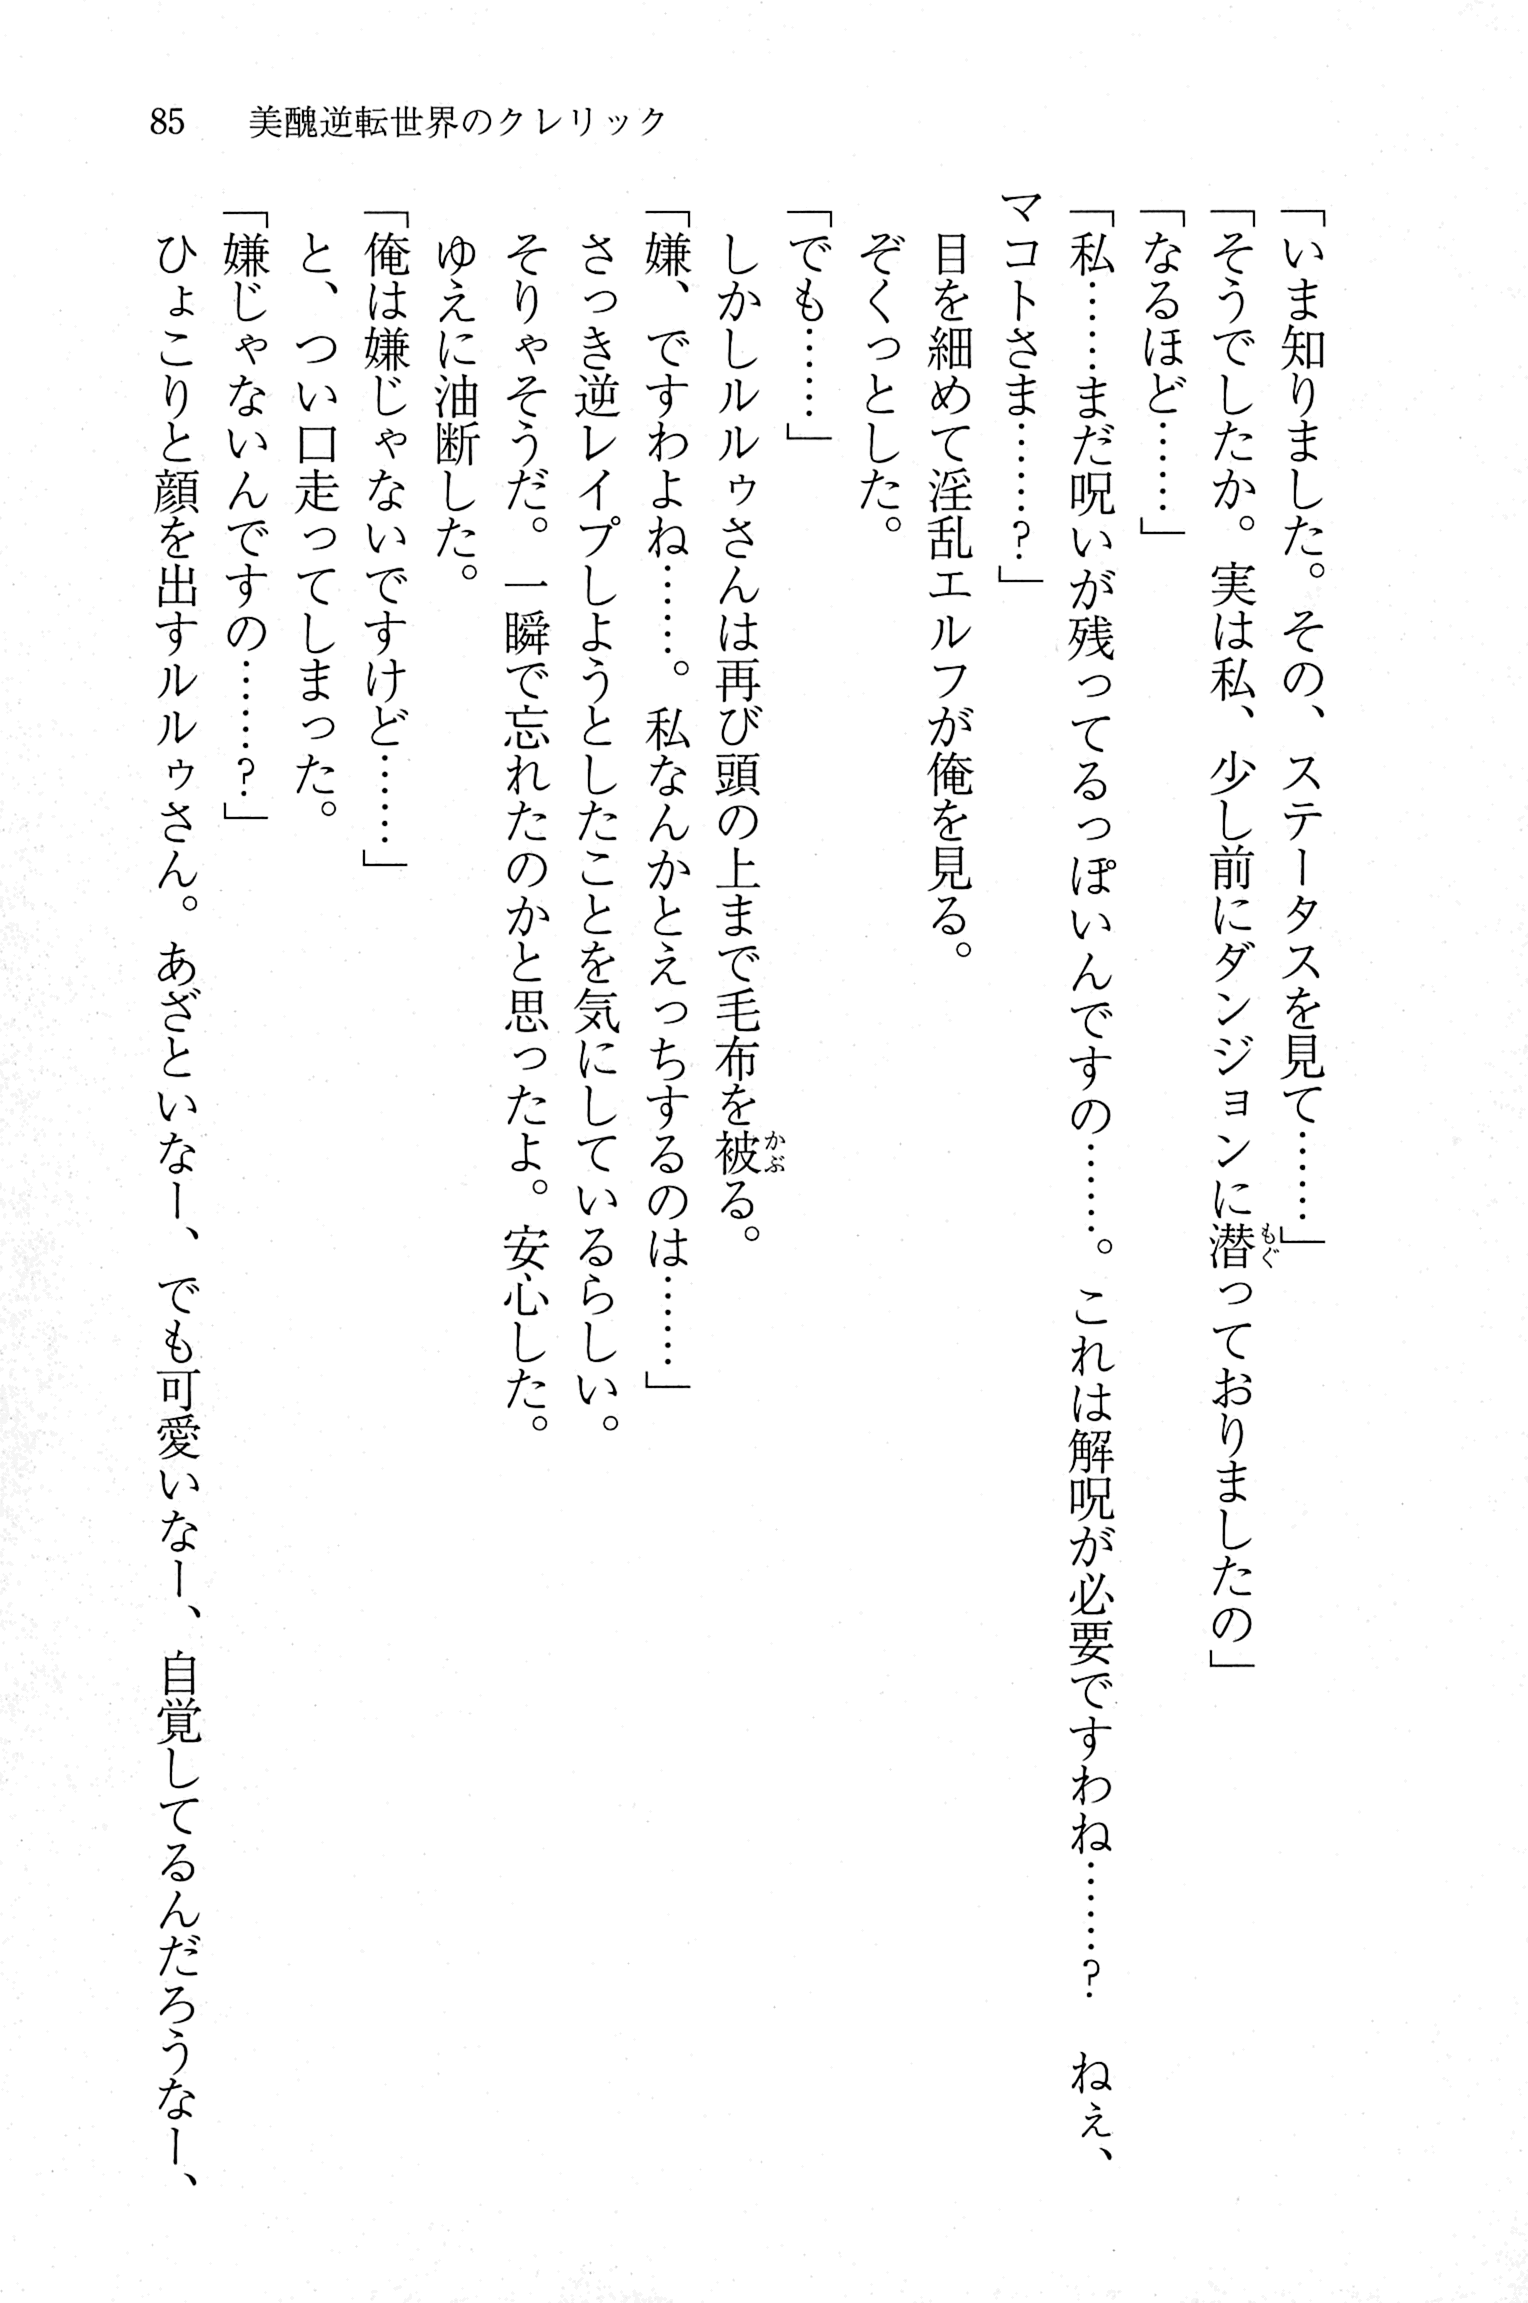 85 美醜逆転世界のクレリック
「いま知りました。その、ステータスを見て……」
「そうでしたか。実は私、少し前にダンジョンに潜っておりましたの」
もぐ
「なるほど……」
「私……まだ呪いが残ってるっぽいんですの……。これは解呪が必要ですわね……？　ねぇ、
マコトさま……？」
目を細めて淫乱エルフが俺を見る。
ぞくっとした。
「でも……」
しかしルルゥさんは再び頭の上まで毛布を被る。
かぶ
「嫌、ですわよね……。私なんかとえっちするのは……」
さっき逆レイプしようとしたことを気にしているらしい。
そりゃそうだ。一瞬で忘れたのかと思ったよ。安心した。
ゆえに油断した。
「俺は嫌じゃないですけど……」
と、つい口走ってしまった。
「嫌じゃないんですの……？」
ひょこりと顔を出すルルゥさん。あざといなー、でも可愛いなー、自覚してるんだろうなー、